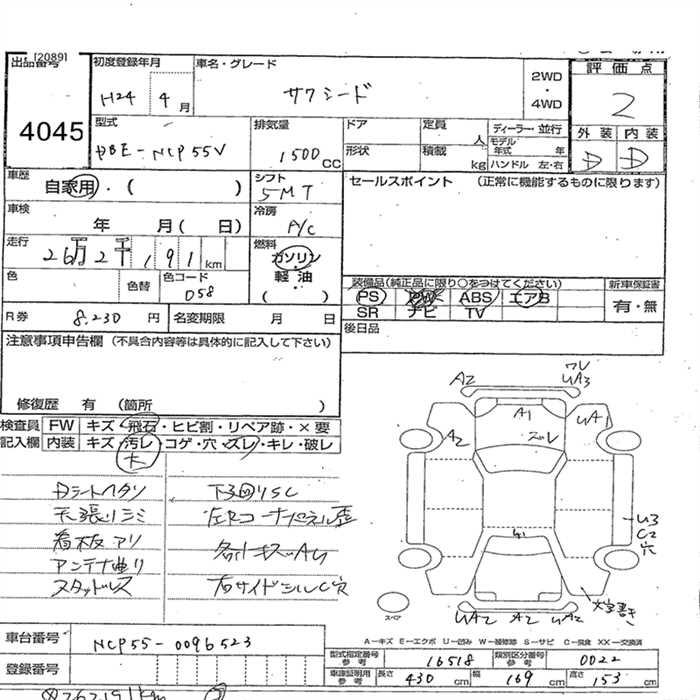 [2089]
出品番号
4045
初度登録年月
H24 4月
車名・グレード
サクシード
2WD
・
4WD
評価点
2
外装 内装
D D
型式
DBE-NCP55V
排気量
1500 CC
ドア
定員
人
形状
積載
kg
ディーラー・並行
モデル年式 年
ハンドル 左・右
車歴
自家用・( )
シフト
5MT
セールスポイント (正常に機能するものに限ります)
車検
年 月( 日)
冷房
A/C
走行
26万2千191km
燃料
ガソリン
・
軽油
( )
色
色替
色コード
058
装備品(純正品に限り○をつけてください)
新車保証書
PS PW ABS エアB
SR ナビ TV
有・無
R券 8,230 円
名変期限 月 日
後日品
注意事項申告欄 (不具合内容等は具体的に記入して下さい)
修復歴 有 (箇所 )
検査員 FW キズ・飛石・ヒビ割・リペア跡・×要
記入欄 内装 キズ・汚レ・コゲ・穴・ズレ・キレ・破レ
大
Dシートヘタリ
天張リシミ
看板アリ
アンテナ曲リ
スタッドレス
下回リSC
左Rコーナーパネル歪
各所キズAU
右サイドシルC穴
A2
ワレ
UA3
A1
UA1
A2
ズレ
U3
C2
穴
スペア
UA2 A2 UA2
A-キズ E-エクボ U-凹み W-補修跡 S-サビ C-腐食 XX-交換済
車台番号 NCP55-0096523
登録番号
型式指定番号 参考 16518
類別区分番号 参考 0022
車庫証明用 参考 長さ 430 cm 幅 169 cm 高さ 153 cm
※262191km